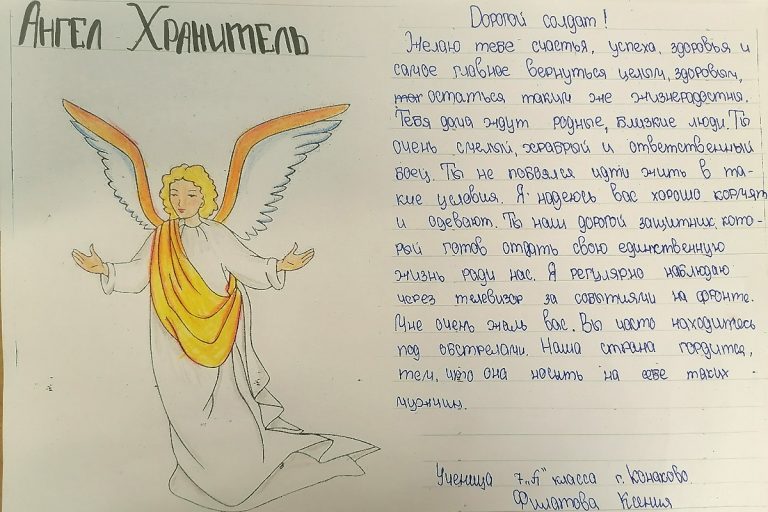 Ангел Хранитель
Дорогой солдат!
Желаю тебе счастья, успеха, здоровья и
самое главное вернуться целым, здоровым,
остаться таким же жизнерадостным.
Тебя дома ждут родные, близкие люди. Ты
очень смелый, храбрый и ответственный
боец. Ты не побоялся идти жить в та-
кие условия. Я надеюсь вас хорошо кормят
и одевают. Ты наш дорогой защитник, кото-
рый готов отдать свою единственную
жизнь ради нас. Я регулярно наблюдаю
через телевизор за событиями на фронте.
Мне очень жаль вас. Вы часто находитесь
под обстрелами. Наша страна гордится,
тем, что она носить на себе таких
мужчин.
Ученица 7„А" класса г. Конаково
Филатова Ксения